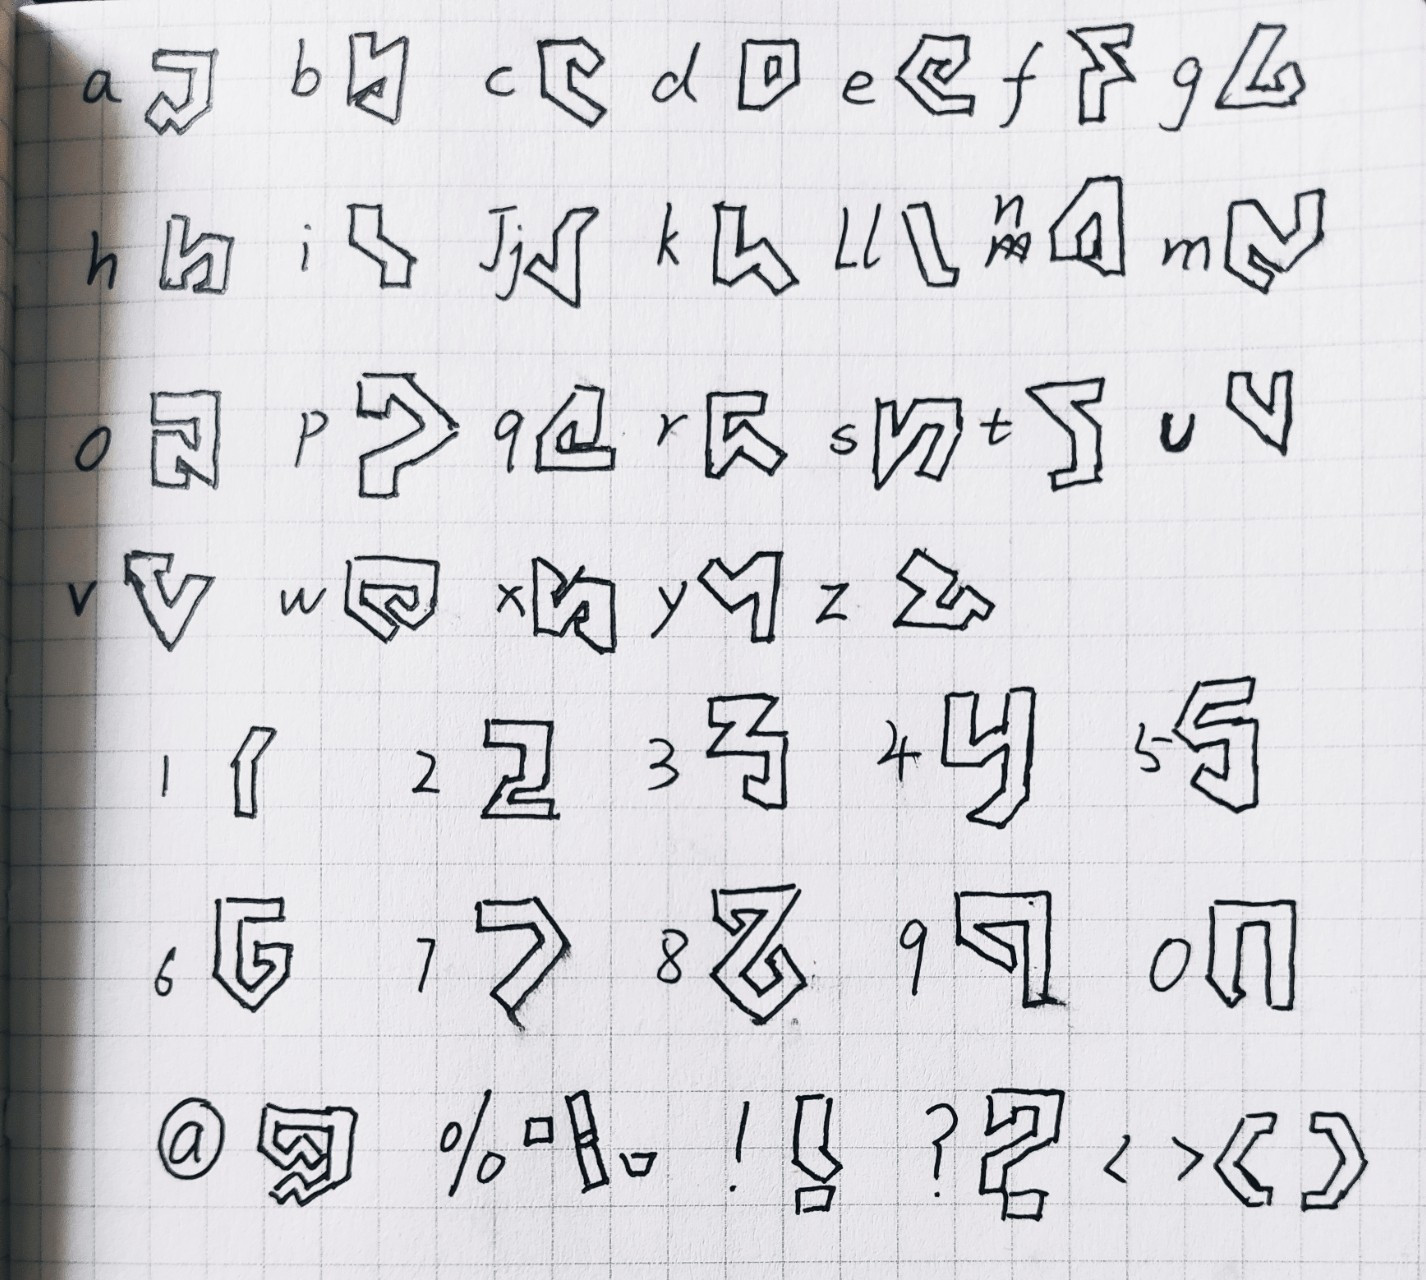 a b c d e f g
h i Jj k Ll n m
o p q r s t u
v w x y z
1 2 3 4 5
6 7 8 9 0
@ % ! ? < >